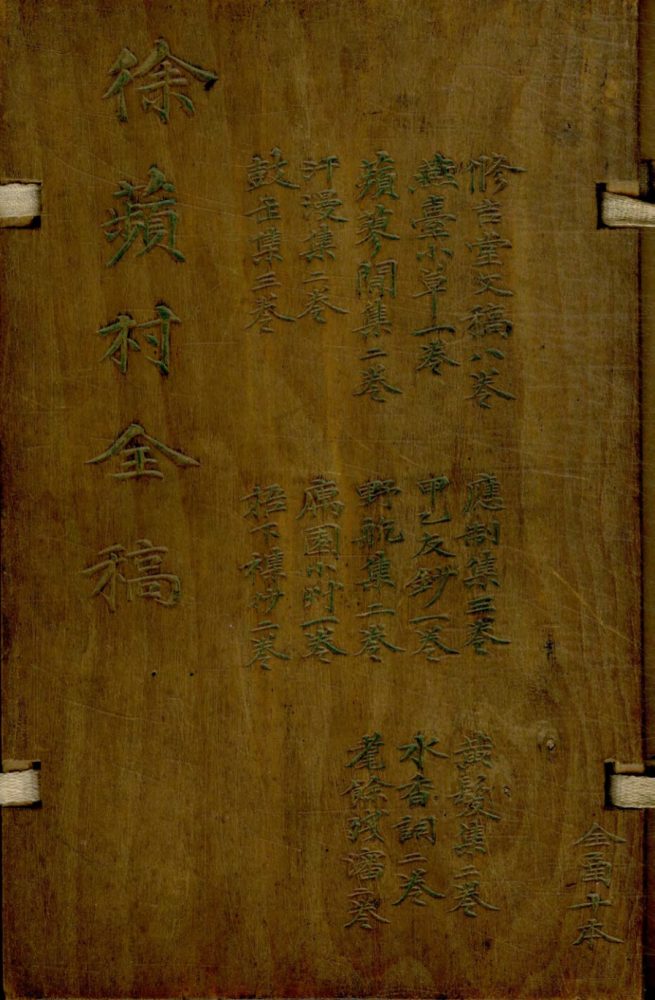 脩吉堂文稿八卷
應制集三卷
黃髮集二卷
燕臺小草一卷
甲乙友鈔一卷
水香詞二卷
蘋蓼閒集二卷
野航集二卷
耄餘殘瀋二卷
汗漫集二卷
寓園小艸一卷
鼓缶集三卷
梧下襍抄二卷
徐蘋村全稿